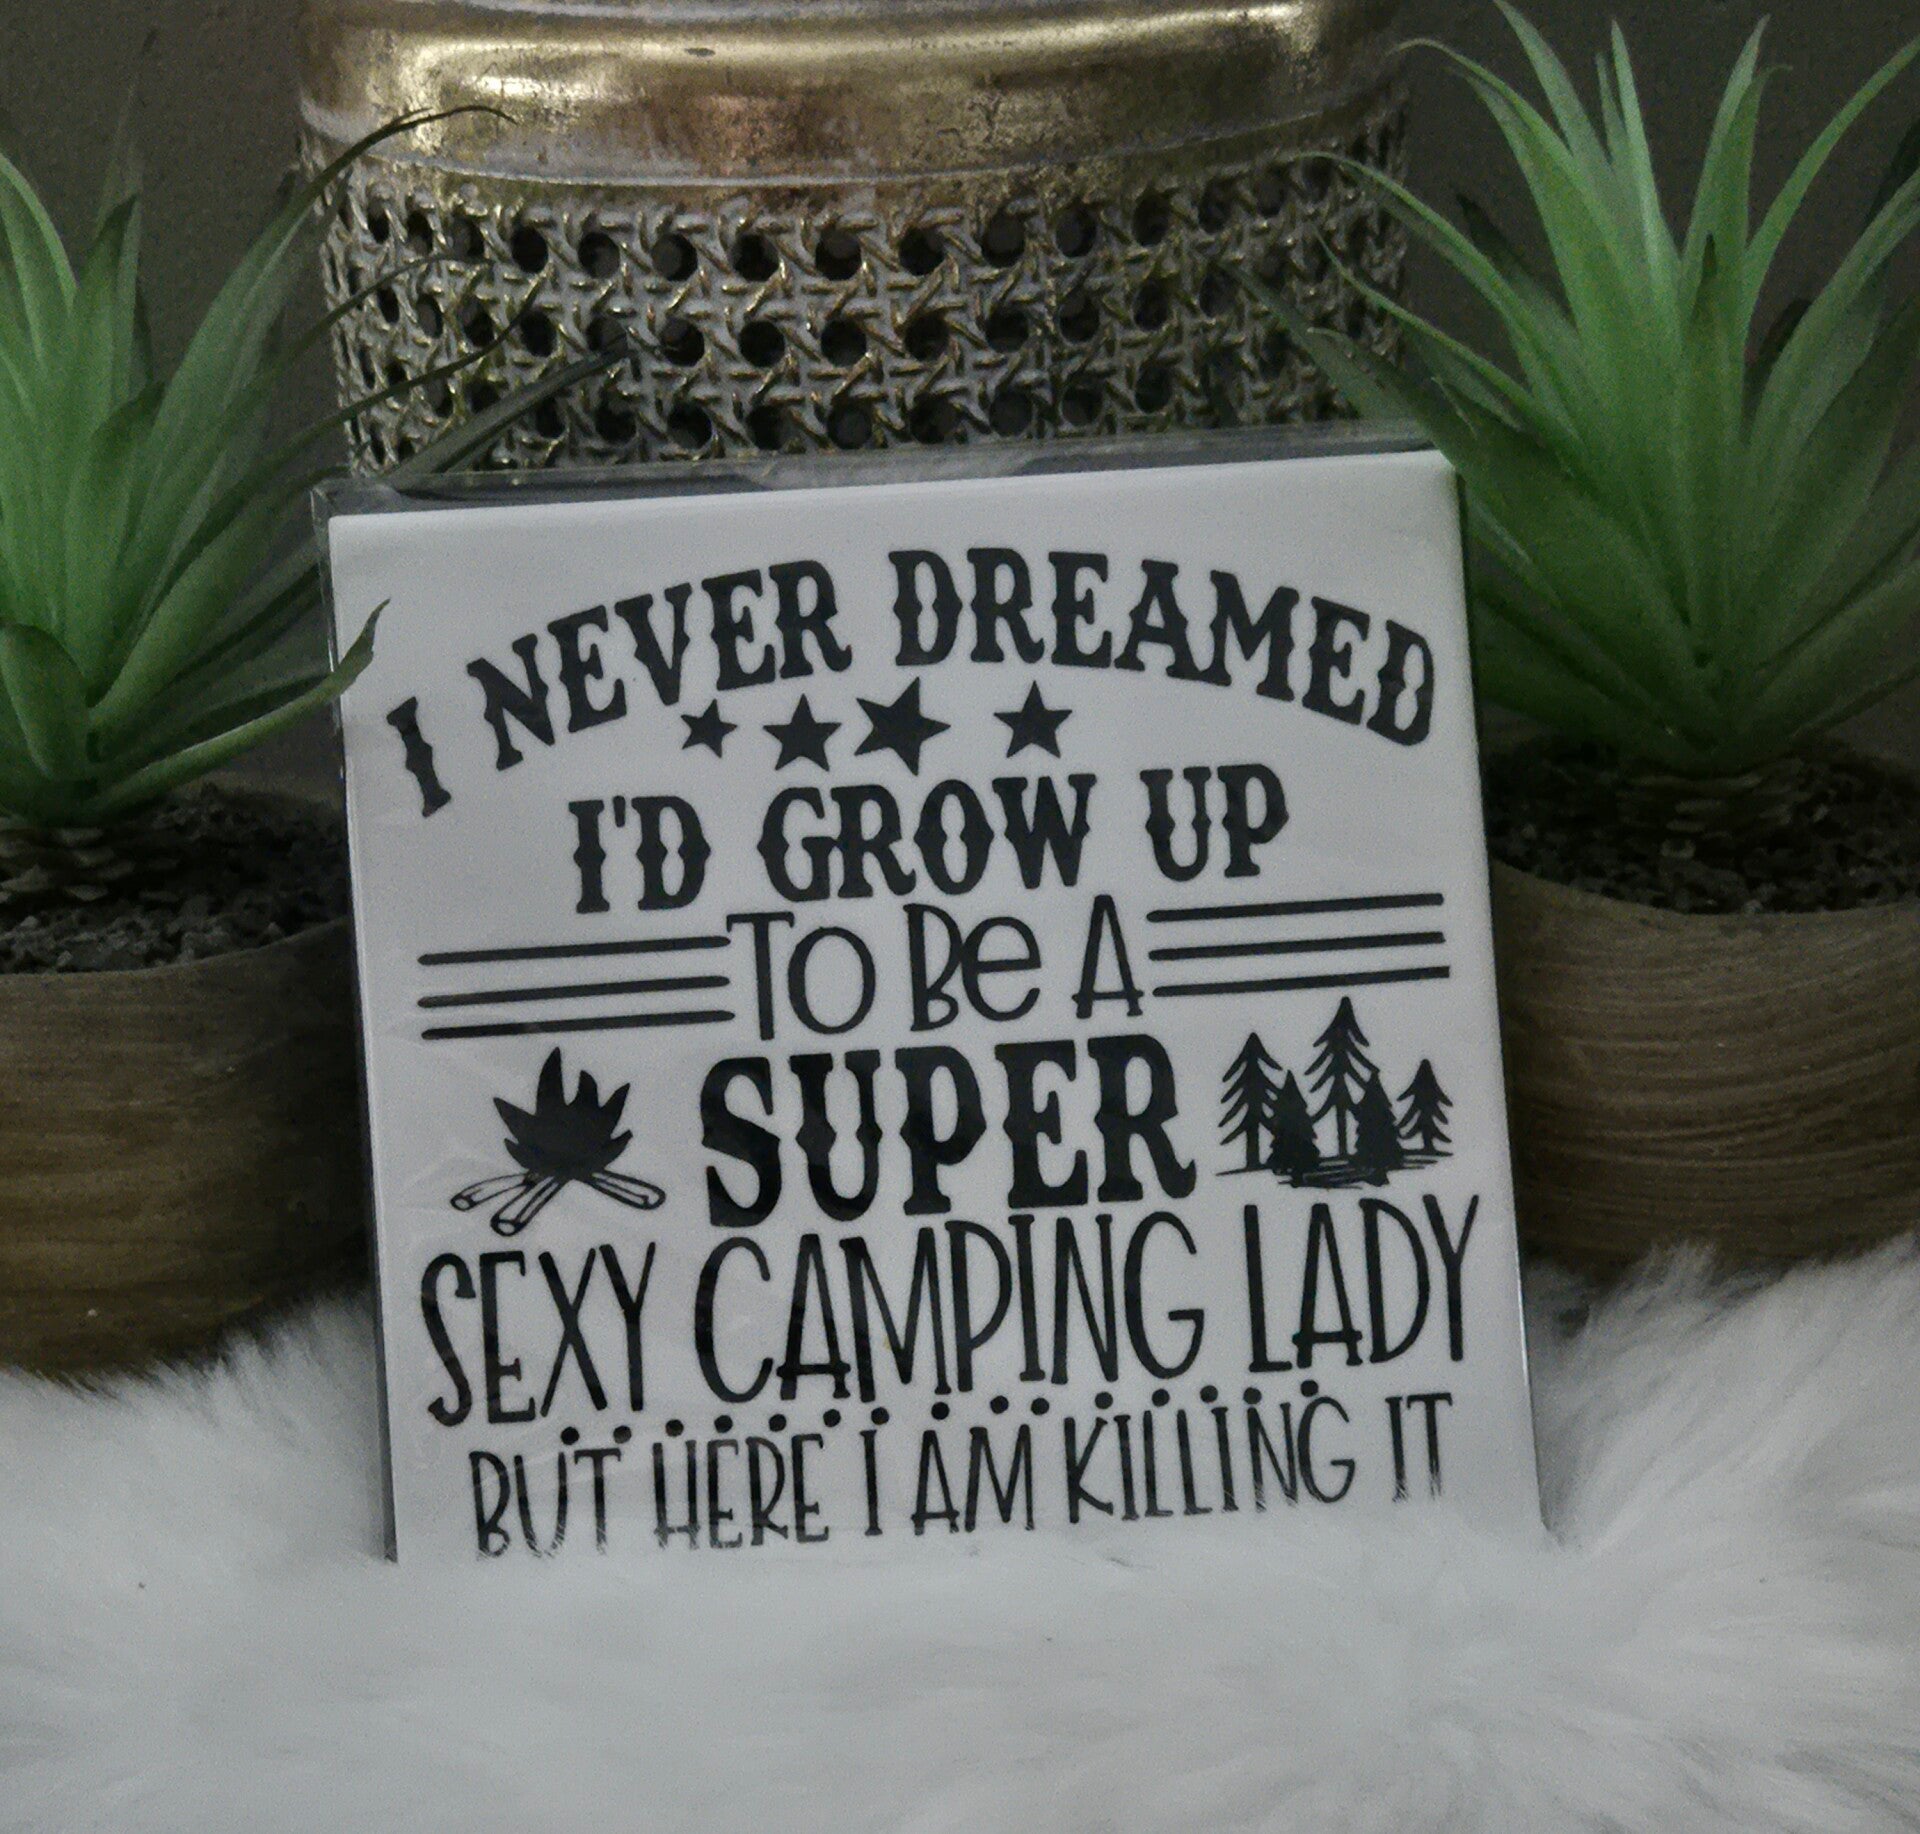 I NEVER DREAMED
I'D GROW UP
TO Be A
SUPER
SEXY CAMPING LADY
BUT HERE I AM KILLING IT